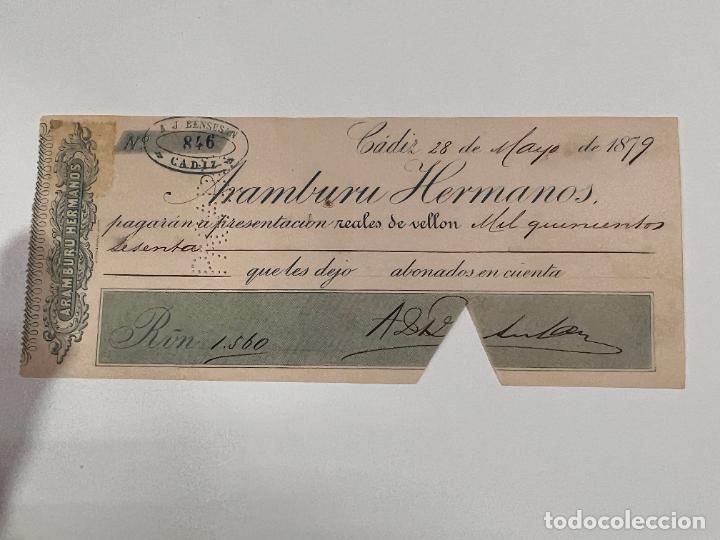 Nº 846
A J BENSUSAN
CADIZ
Cádiz 28 de Mayo de 1879
Aramburu Hermanos.
pagarán á presentacion reales de vellon Mil quinientos
sesenta
que les dejo abonados en cuenta
Rvn 1.560
ARAMBURU HERMANOS
todocoleccion